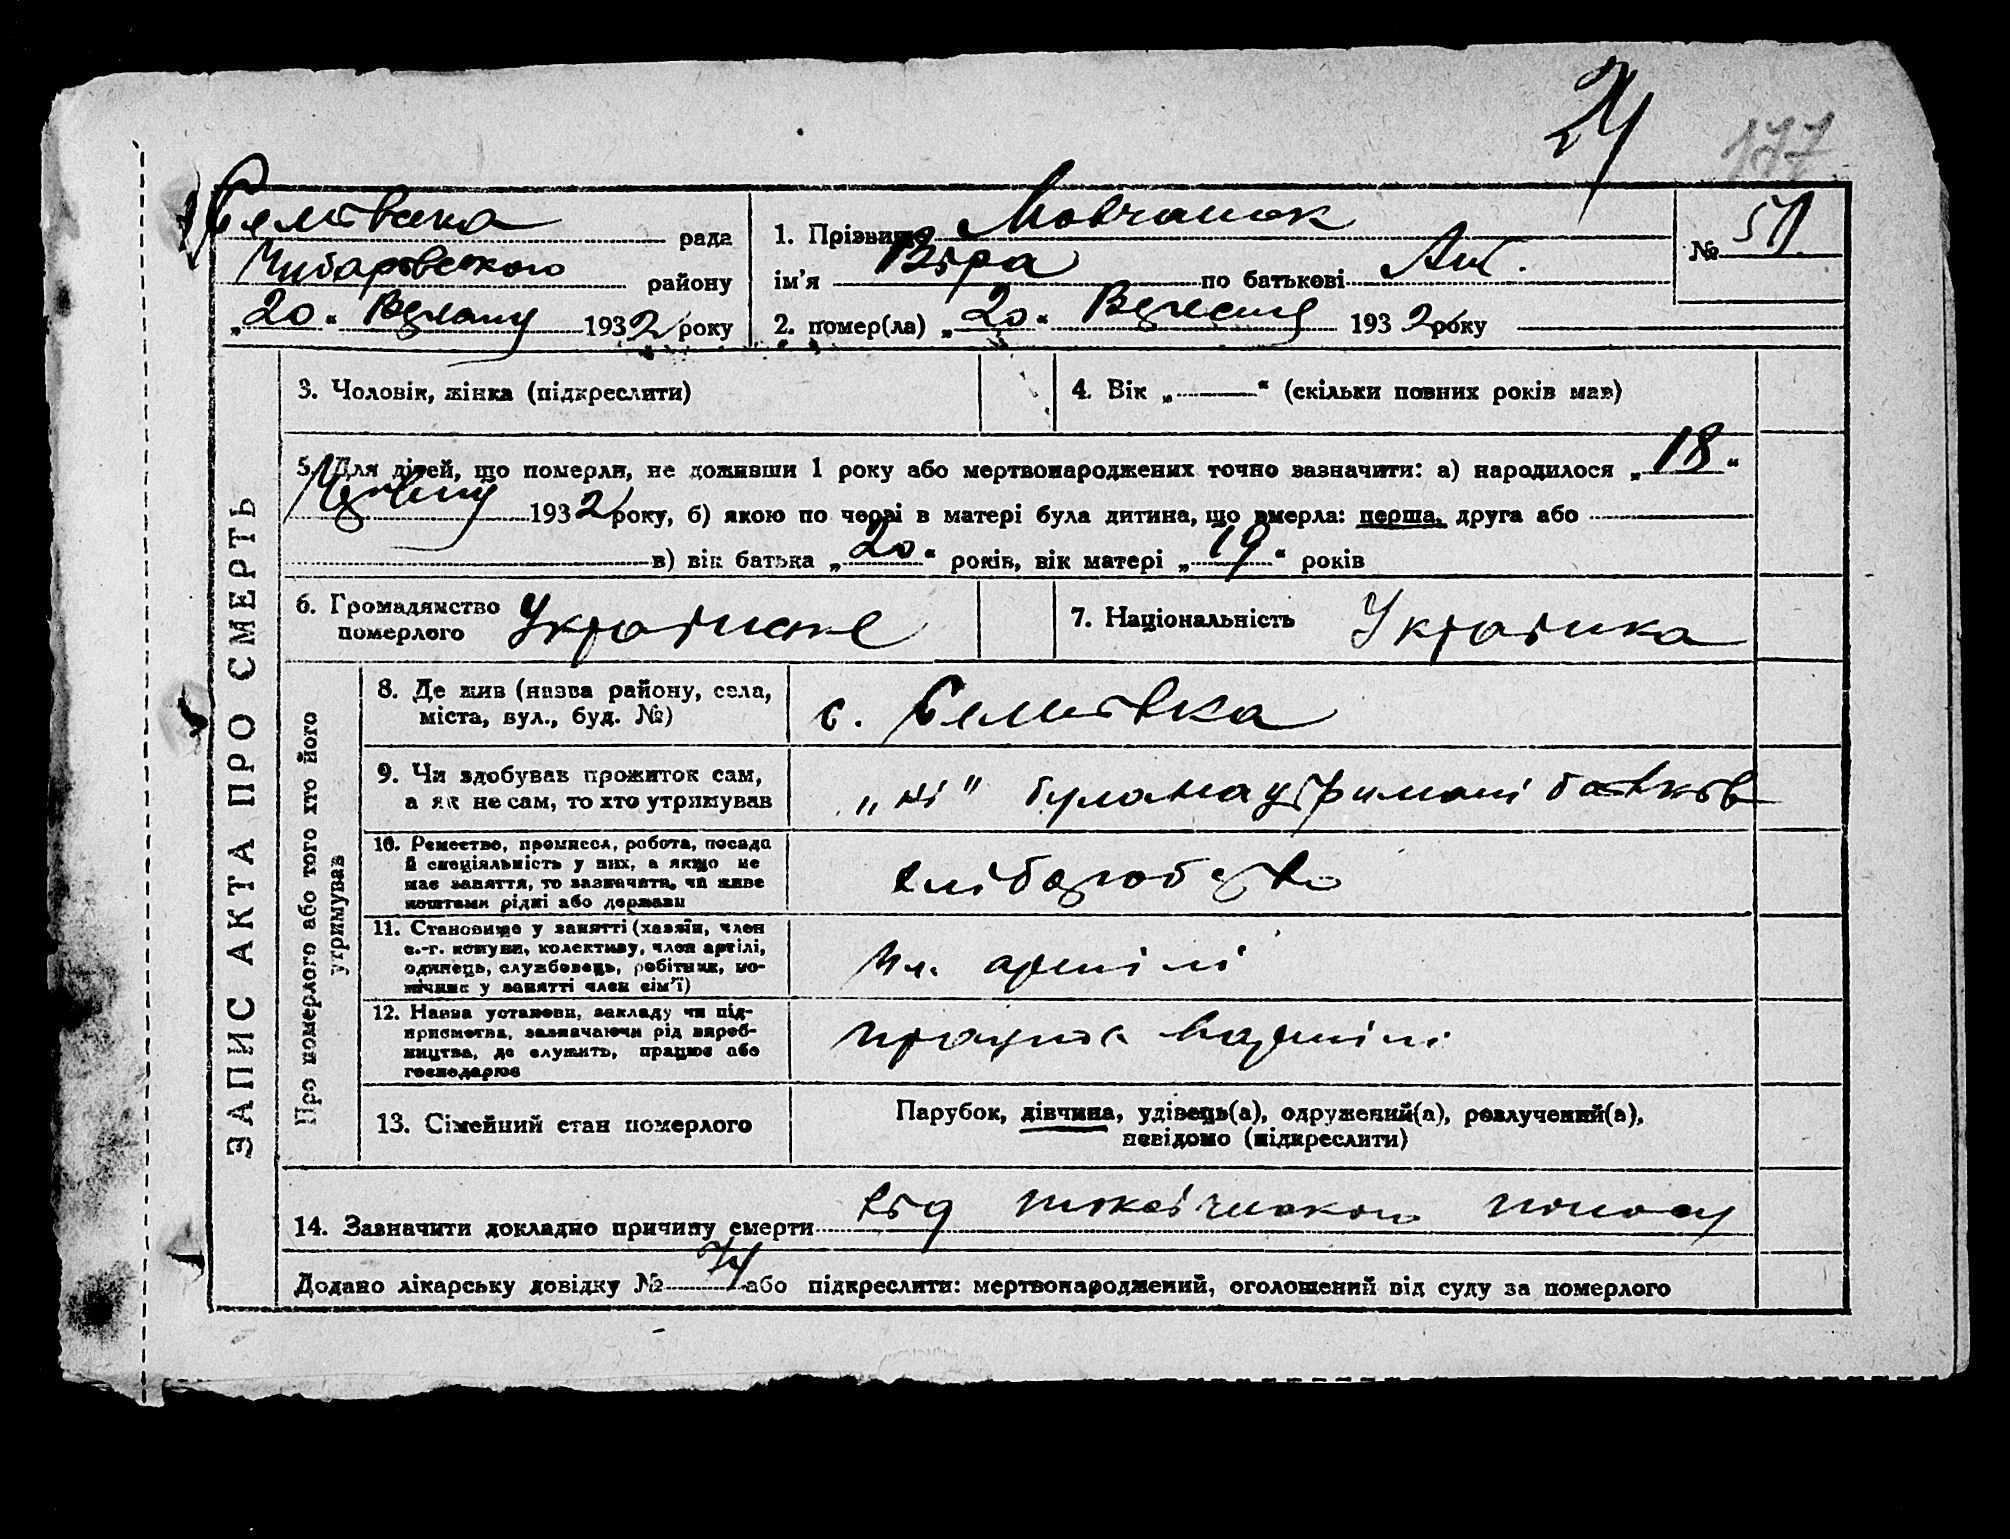 24
177
Семівська рада
Чубарівского району
„20“ Вересня 1932 року
1. Прізвище Мовчанок
ім'я Віра по батькові Ант.
2. помер(ла) „20“ Вересня 1932 року
№ 51
ЗАПИС АКТА ПРО СМЕРТЬ
3. Чоловік, жінка (підкреслити)
4. Вік „ “ (скільки повних років мав)
5. Для дітей, що померли, не доживши 1 року або мертвонароджених точно зазначити: а) народилося „18“
1932 року, б) якою по черзі в матері була дитина, що вмерла: перша, друга або
в) вік батька „20“ років, вік матері „19“ років
6. Громадянство
померлого
Українське
7. Національність Українка
Про померлого або того хто його
утримував
8. Де жив (назва району, села,
міста, вул., буд. №)
с. Семівка
9. Чи здобував прожиток сам,
а як не сам, то хто утримував
„ні" була на утримані батьків
10. Ремество, промисел, робота, посада
й спеціяльність у них, а якщо не
має заняття, то зазначити, чи живе
коштами рідні або держави
хліборобство
11. Становище у занятті (хазяїн, член
с.-г. комуни, колективу, член артілі,
одинець, службовець, робітник, по-
мічник у занятті член сім'ї)
Чл. артілі
12. Назва установи, закладу чи під-
приємства, зазначаючи рід вироб-
ництва, де служить, працює або
господарює
працює в артілі
13. Сімейний стан померлого
Парубок, дівчина, удівець(а), одружений(а), розлучений(а),
невідомо (підкреслити)
14. Зазначити докладно причину смерти від токсічного поносу
Додано лікарську довідку № або підкреслити: мертвонароджений, оголошений від суду за померлого